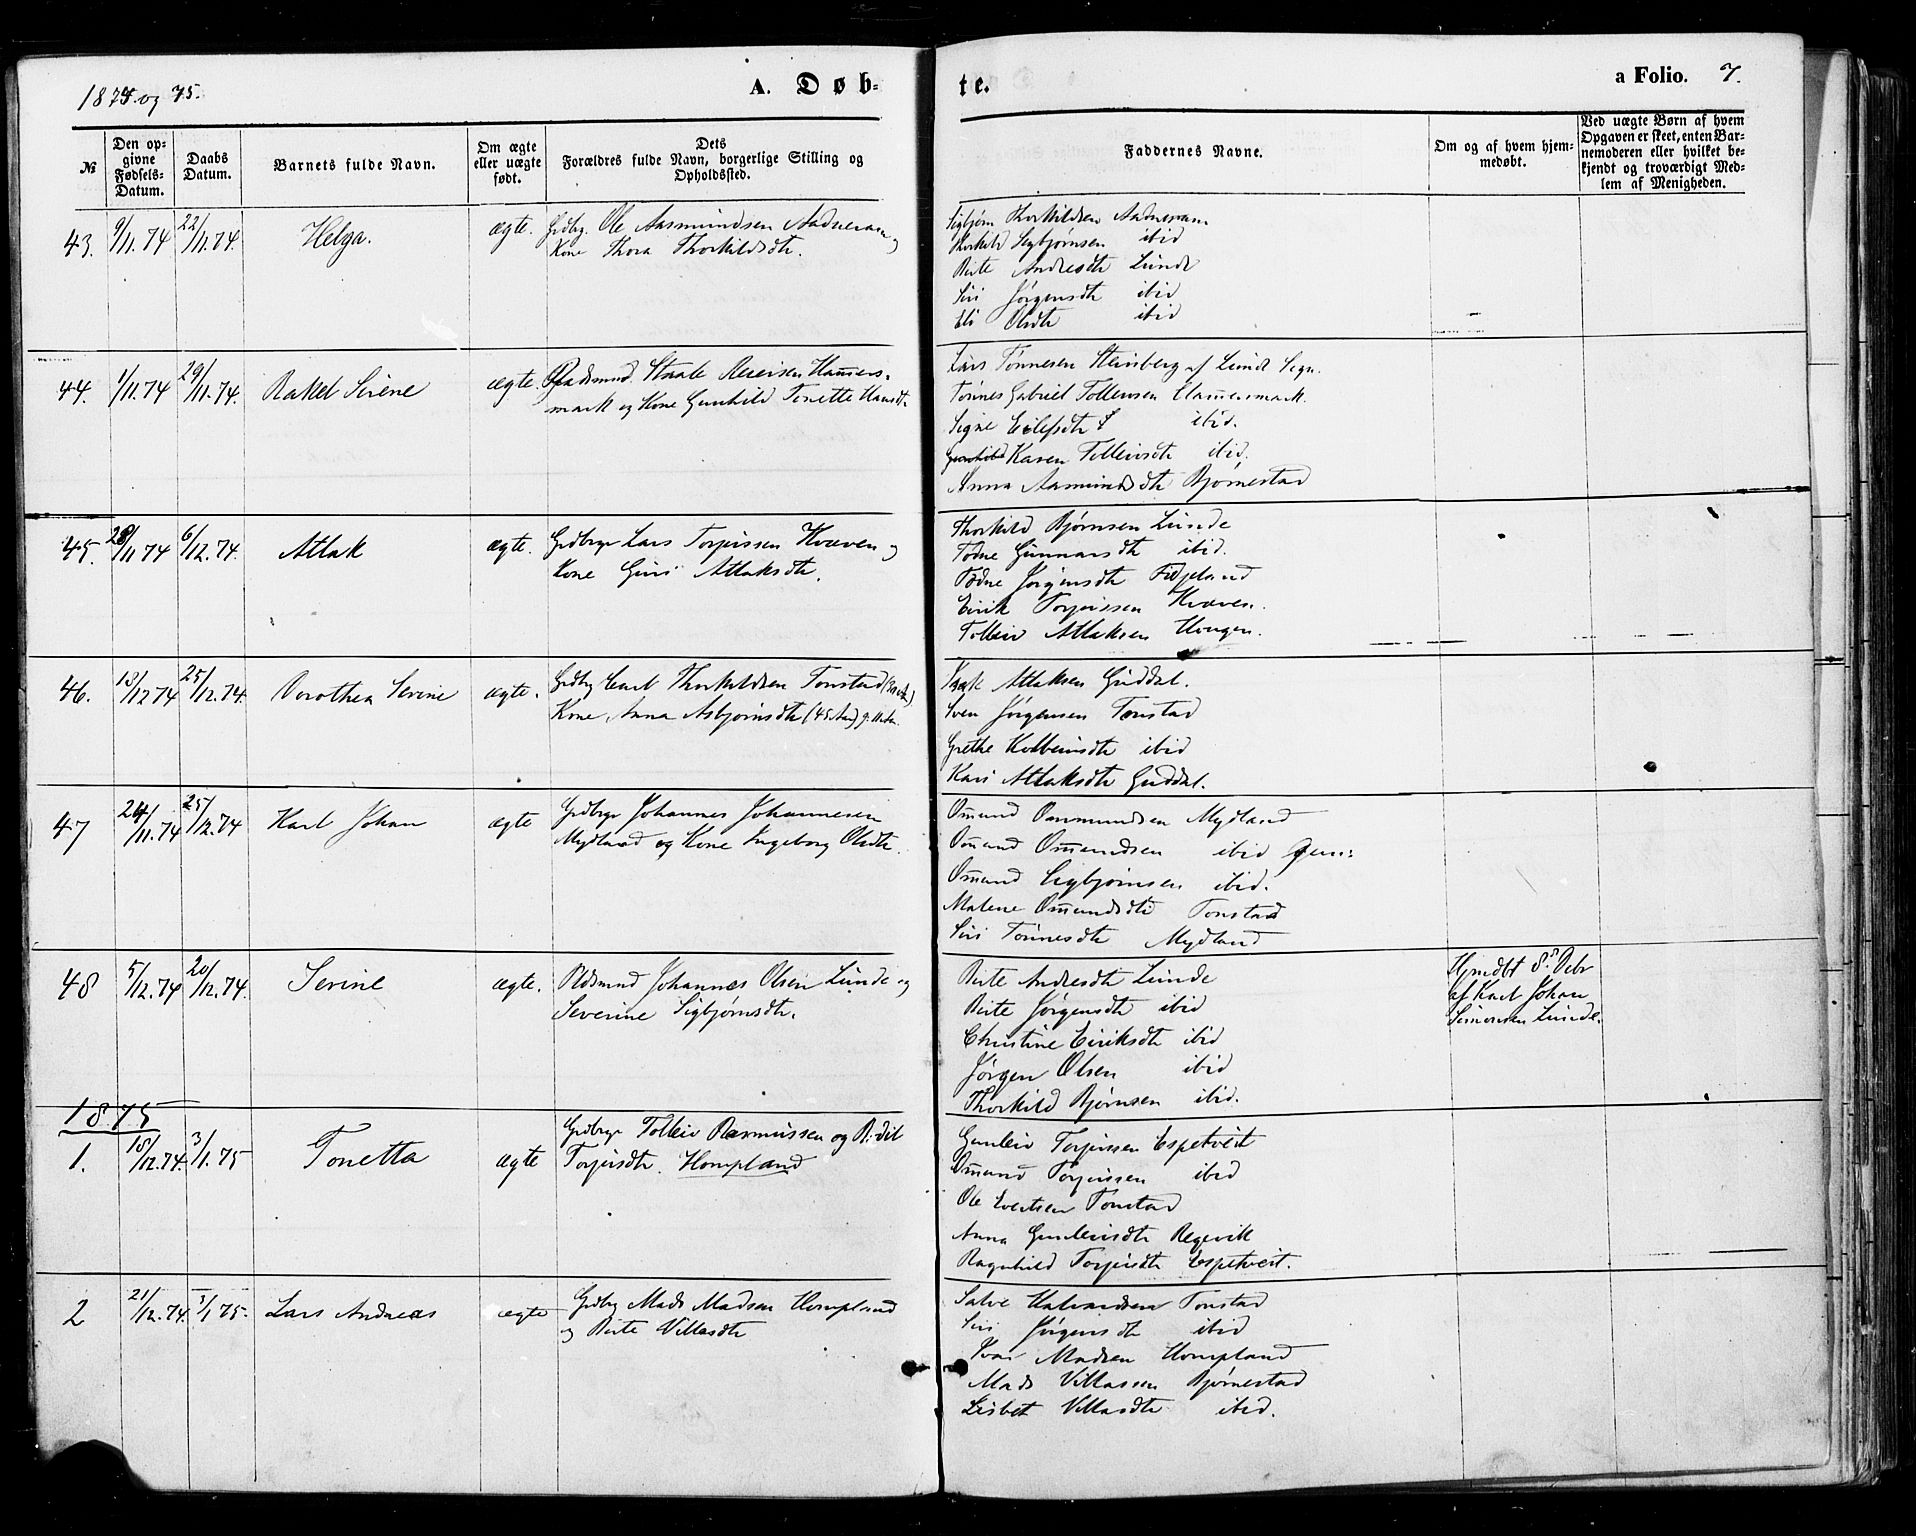 1874 og 75.
A. Døb-
te.
a Folio. 7.
№
Den op-
givne
Fødsels-
Datum.
Daabs
Datum.
Barnets fulde Navn.
Om ægte
eller uægte
født.
Dets
Forældres fulde Navn, borgerlige Stilling og
Opholdssted.
Faddernes Navne.
Om og af hvem hjem-
medøbt.
Ved uægte Børn af hvem
Opgaven er skeet, enten Bar-
nemoderen eller hvilket be-
kjendt og troværdigt Med-
lem af Menigheden.
43. 9/11. 74 22/11.74. Helga. ægte. Grdbrg. Ole Aasmundsen Aadneram og
Kone Thora Thorkildsdtr.
Sigbjørn Thorkildsen Aadneram
Thorkild Sigbjørnsen ibid
Berte Andresdtr Lunde
Siri Jørgensdtr ibid
Eli Olsdtr ibid
44. 1/11.74 29/11.74. Rakel Sirene ægte. Staale Reiersen Hamers-
mark og Kone Gunhild Tonette Hansdtr.
Lars Tønnesen Steinberg af Lunde Sogn.
Tønnes Gabriel Tollevsen Hamersmark.
Signe Eilefsdtr ibid.
Karen Tolleivsdtr ibid.
Anna Aasmundsdtr Bjørnestad
45. 28/11 74 6/12.74. Atlak ægte. Grdbrgr Lars Torjussen Kvæven og
Kone Guri Atlaksdtr.
Thorkild Bjørnsen Lunde
Todne Gunnarsdtr ibid.
Todne Jørgensdtr Fidjeland
Eirik Torjussen Kvæven.
Tolleiv Atlaksen Hougen.
46. 13/12 74 25/12.74. Dorothea Serine ægte. Grdbrg Carl Thorkildsen Tonstad
Kone, Anna Asbjørnsdtr (45 Aar)
Atlaksen Guddal.
Sven Jørgensen Tonstad
Grethe Kolbeinsdtr ibid
Kari Atlaksdtr Guddal.
47 24/11.74 25/12.74 Karl Johan ægte Grdbrgr Johannes Johannesen
Mydland og Kone Ingeborg Olsdtr.
Omund Omundsen Mydland
Omund Omundsen ibid
Omund Sigbjørnsen ibid.
Malene Omundsdtr Tonstad
Siri Tønnesdtr Mydland
48 5/12.74 20/12.74. Serine ægte. Pldsmnd Johannes Olsen Lunde og
Severine Sigbjørnsdtr.
Berte Andresdtr Lunde
Berte Jørgensdtr ibid
Christine Eiriksdtr ibid
Jørgen Olsen ibid
Thorkild Bjørnsen ibid.
Hjmdbt 8de Debr
af Karl Johan
Simonsen Lunde.
1875
1. 18/12.74. 3/1.75 Tonetta ægte Grdbrgr Tolleiv Rasmussen og Berit
Torjusdtr. Hompland
Gunleiv Torjussen Espetveit
Omund Torjussen ibid
Ole Evertsen Tonstad
Anna Gunleivsdtr Regevik
Ragnhild Torjusdtr Espetveit.
2 21/12.74. 3/1 75. Lars Andreas ægte Grdbrg Mads Madsen Hompland
og Berte Villasdtr
Salve Halvardsen Tonstad
Siri Jørgensdtr ibid
Ivar Madsen Hompland
Mads Villassen Bjørnestad
Lisbet Villasdtr ibid.